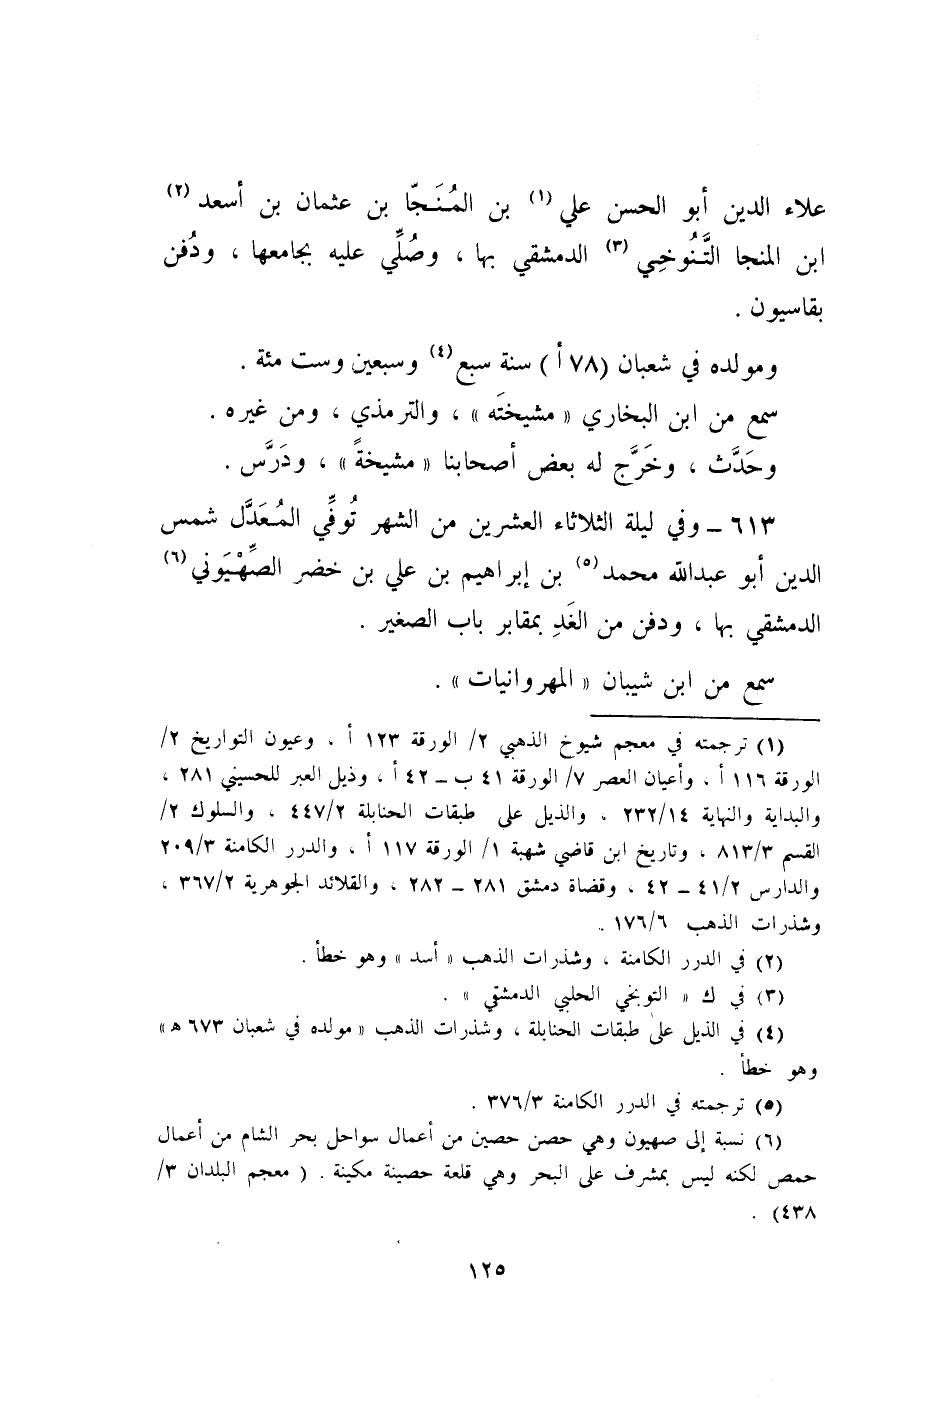 علاء الدين أبو الحسن علي (١) بن المُنَجّا بن عثمان بن أسعد (٢)
ابن المنجا التَّنُوخي (٣) الدمشقي بها ، وصُلِّي عليه بجامعها ، ودُفن
بقاسيون .
ومولده في شعبان (٧٨ أ) سنة سبع (٤) وسبعين وست مئة .
سمع من ابن البخاري « مشيختَه » ، والترمذي ، ومن غيره .
وحَدَّث ، وخَرَّج له بعض أصحابنا « مشيخةً » ، ودَرَّس .
٦١٣ ــ وفي ليلة الثلاثاء العشرين من الشهر تُوفِّي المُعَدَّل شمس
الدين أبو عبدالله محمد (٥) بن إبراهيم بن علي بن خضر الصِّهْيَوني (٦)
الدمشقي بها ، ودفن من الغَدِ بمقابر باب الصغير .
سمع من ابن شيبان « المهروانيات » .
(١) ترجمته في معجم شيوخ الذهبي ٢/ الورقة ١٢٣ أ ، وعيون التواريخ ٢/
الورقة ١١٦ أ ، وأعيان العصر ٧/ الورقة ٤١ ب ــ ٤٢ أ ، وذيل العبر للحسيني ٢٨١ ،
والبداية والنهاية ٢٣٢/١٤ ، والذيل على طبقات الحنابلة ٤٤٧/٢ ، والسلوك ٢/
القسم ٨١٣/٣ ، وتاريخ ابن قاضي شهبة ١/ الورقة ١١٧ أ ، والدرر الكامنة ٢٠٩/٣
والدارس ٤١/٢ ــ ٤٢ ، وقضاة دمشق ٢٨١ ــ ٢٨٢ ، والقلائد الجوهرية ٣٦٧/٢ ،
وشذرات الذهب ١٧٦/٦ .
(٢) في الدرر الكامنة ، وشذرات الذهب « أسد » وهو خطأ .
(٣) في ك « التوبخي الحلبي الدمشقي » .
(٤) في الذيل على طبقات الحنابلة ، وشذرات الذهب « مولده في شعبان ٦٧٣ هـ »
وهو خطأ .
(٥) ترجمته في الدرر الكامنة ٣٧٦/٣ .
(٦) نسبة إلى صهيون وهي حصن حصين من أعمال سواحل بحر الشام من أعمال
حمص لكنه ليس بمشرف على البحر وهي قلعة حصينة مكينة . ( معجم البلدان ٣/
٤٣٨) .
١٢٥